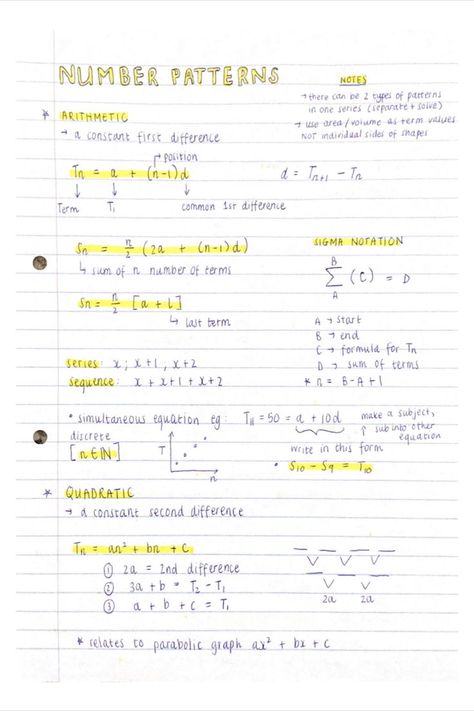 NUMBER PATTERNS
NOTES
→ there can be 2 types of patterns
in one series (separate + solve)
→ use area/volume as term values
NOT individual sides of shapes
* ARITHMETIC
→ a constant first difference
position
Tn = a + (n-1)d
d = Tn+1 - Tn
Term T₁ common 1st difference
Sn = n/2 (2a + (n-1)d)
↳ sum of n number of terms
Sn = n/2 [a + L]
↳ last term
SIGMA NOTATION
B
∑ (C) = D
A
A → start
B → end
C → formula for Tn
D → sum of terms
* n = B-A+1
series: x ; x+1 , x+2
sequence: x + x+1 + x+2
• simultaneous equation eg: T₁₁ = 50 = a + 10d
make a subject,
↑ sub into other
equation
write in this form
discrete
[n∈ℕ]
T
n
• S₁₀ - S₉ = T₁₀
* QUADRATIC
→ a constant second difference
Tn = an² + bn + c
① 2a = 2nd difference
② 3a + b = T₂ - T₁
③ a + b + c = T₁
2a 2a
* relates to parabolic graph ax² + bx + c